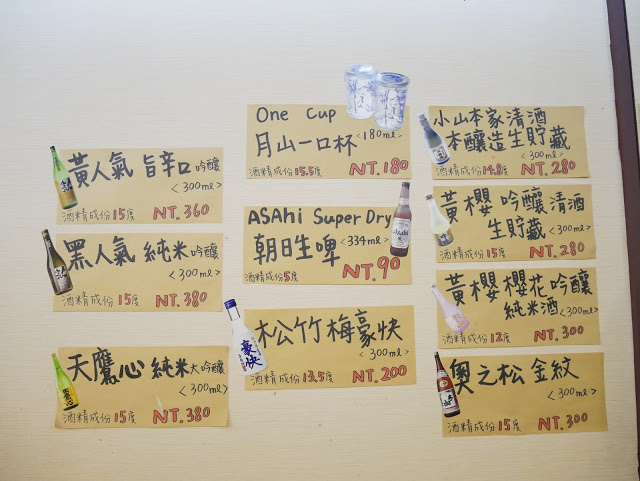 黃人氣 旨辛口 吟釀
<300ml>
酒精成份15度 NT.360
黑人氣 純米吟釀
<300ml>
酒精成份15度 NT.380
天鷹心 純米大吟釀
<300ml>
酒精成份15度 NT.380
One Cup
月山一口杯 <180ml>
酒精成份15.5度 NT.180
ASAHi Super Dry
朝日生啤 <334ml>
酒精成份5度 NT.90
松竹梅豪快
<300ml>
酒精成份13.5度 NT.200
豪快
小山本家清酒
本釀造生貯藏
<300ml>
酒精成份14.8度 NT.280
黃櫻 吟釀清酒
生貯藏 <300ml>
酒精成份15度 NT.280
黃櫻櫻花吟釀
純米酒 <300ml>
酒精成份12度 NT.300
奧之松 金紋
<300ml>
酒精成份15度 NT.300